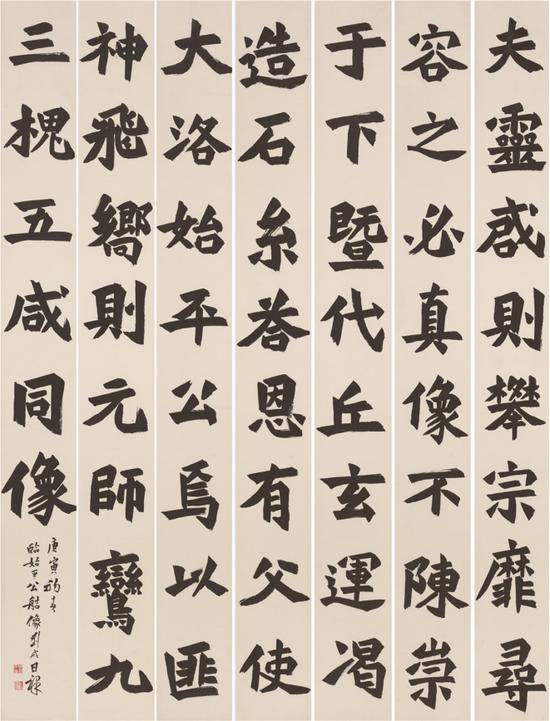 夫靈則攀宗靡尋
容之必真像不陳崇
于下暨代丘玄運渴
造石系答恩有父使
大洛始平公烏以匪
神飛嚮則元師鸞九
三槐五咸同像
庚寅初春
臨始平公造像劉日祿